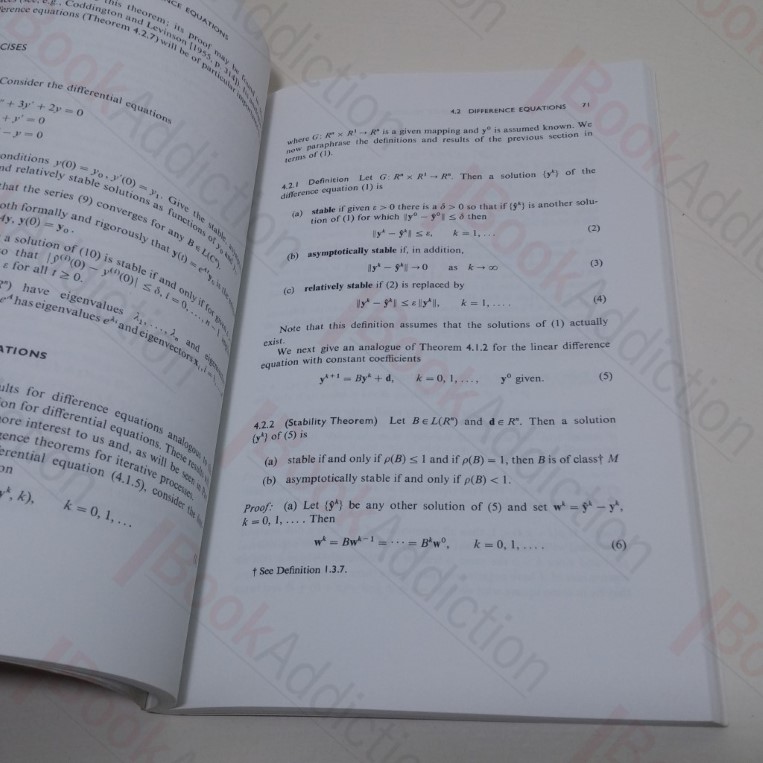 CE EQUATIONS
this theorem; its proof may be found
(see, e.g., Coddington and Levinson [1955, p. 314]).
erence equations (Theorem 4.2.7) will be of particular
CISES
Consider the differential equations
+ 3y′ + 2y = 0
+ y′ = 0
− y = 0
onditions y(0) = y₀, y′(0) = y₁. Give the stable,
nd relatively stable solutions as functions of y₀ and
that the series (9) converges for any B ∈ L(Cⁿ).
oth formally and rigorously that y(t) = e
Ay, y(0) = y₀.
a solution of (10) is stable if and only if for given
o that |ŷ⁽ⁱ⁾(0) − y⁽ⁱ⁾(0)| ≤ δ, i = 0, . . . , n − 1
ε for all t ≥ 0.
have eigenvalues λ₁, . . . , λₙ and
has eigenvalues and eigenvectors
ATIONS
ults for difference equations analogous to
on for differential equations. These results
ore interest to us and, as will be seen in the
ence theorems for iterative processes.
erential equation (4.1.5), consider the
on
yᵏ, k), k = 0, 1, . . .
4.2 DIFFERENCE EQUATIONS 71
where G: Rⁿ × R¹ → Rⁿ is a given mapping and y⁰ is assumed known. We
now paraphrase the definitions and results of the previous section in
terms of (1).
4.2.1 Definition Let G: Rⁿ × R¹ → Rⁿ. Then a solution {yᵏ} of the
difference equation (1) is
(a) stable if given ε > 0 there is a δ > 0 so that if {ŷᵏ} is another solu-
tion of (1) for which ‖y⁰ − ŷ⁰‖ ≤ δ then
‖yᵏ − ŷᵏ‖ ≤ ε, k = 1, . . . (2)
(b) asymptotically stable if, in addition,
‖yᵏ − ŷᵏ‖ → 0 as k → ∞ (3)
(c) relatively stable if (2) is replaced by
‖yᵏ − ŷᵏ‖ ≤ ε ‖yᵏ‖, k = 1, . . . . (4)
Note that this definition assumes that the solutions of (1) actually
exist.
We next give an analogue of Theorem 4.1.2 for the linear difference
equation with constant coefficients
yᵏ⁺¹ = Byᵏ + d, k = 0, 1, . . . , y⁰ given. (5)
4.2.2 (Stability Theorem) Let B ∈ L(Rⁿ) and d ∈ Rⁿ. Then a solution
{yᵏ} of (5) is
(a) stable if and only if ρ(B) ≤ 1 and if ρ(B) = 1, then B is of class† M
(b) asymptotically stable if and only if ρ(B) < 1.
Proof: (a) Let {ŷᵏ} be any other solution of (5) and set wᵏ = ŷᵏ − yᵏ,
k = 0, 1, . . . . Then
wᵏ = Bwᵏ⁻¹ = · · · = Bᵏw⁰, k = 0, 1, . . . . (6)
† See Definition 1.3.7.
BookAddiction